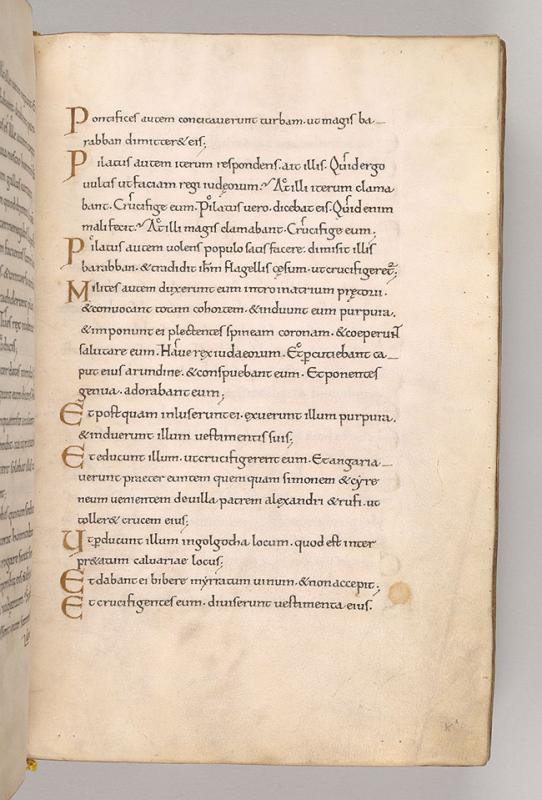 Pontifices autem concitauerunt turbam· ut magis ba
rabban dimitter& eis;
Pilatus autem iterum respondens· ait illis· Quid ergo
uultis ut faciam regi iudeorum? At illi iterum clama
bant· Crucifige eum· Pilatus uero· dicebat eis· Quid enim
mali fecit? At illi magis clamabant· Crucifige eum;
Pilatus autem uolens populo satis facere· dimisit illis
barabban· & tradidit ihm flagellis cęsum· ut crucifiger&ur;
Milites autem duxerunt eum intro in atrium prętorii·
& conuocant totam cohortem· & induunt eum purpura·
& imponunt ei plectentes spineam coronam· & coeperunt
salutare eum· Haue rex iudaeorum· Et p̱cutiebant ca
put eius arundine· & conspuebant eum· Et ponentes
genua· adorabant eum;
Et postquam inluserunt ei· exuerunt illum purpura·
& induerunt illum uestimentis suis;
Et educunt illum· ut crucifigerent eum· Et angaria
uerunt praeter euntem quempiam simonem & cyre
neum uenientem de uilla patrem alexandri & rufi· ut
toller& crucem eius;
Et p̱ducunt illum in golgotha locum· quod est inter
pr&atum caluariae locus;
Et dabant ei bibere myrratum uinum· & non accepit;
Et crucifigentes eum· diuiserunt uestimenta eius·